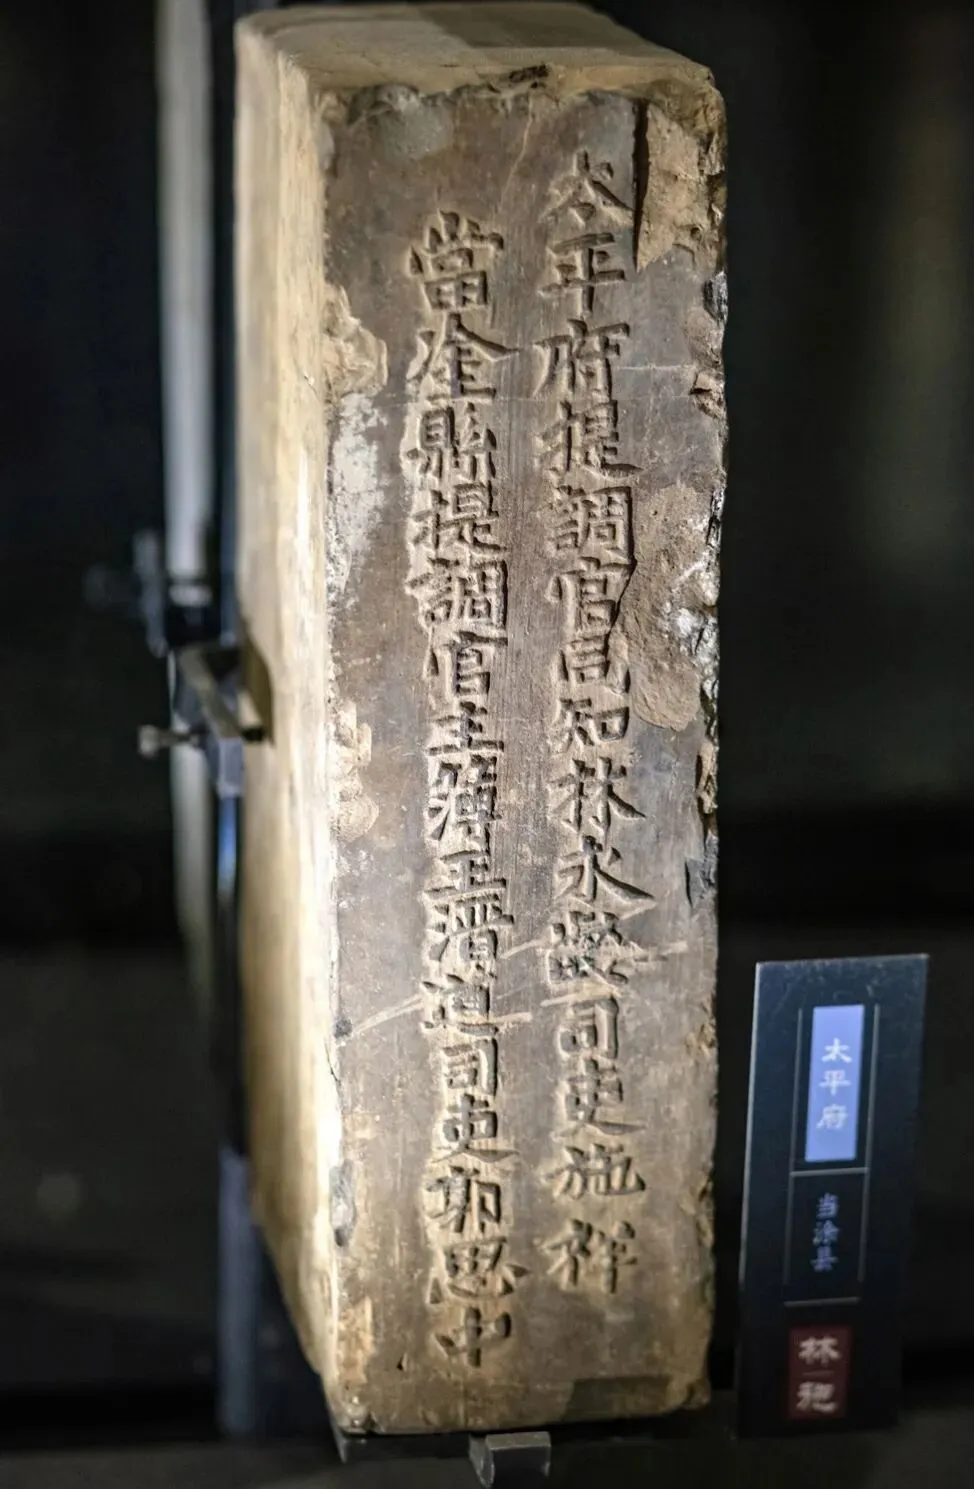 太平府提調官同知林永齡司吏施祥
當塗縣提調官主簿王濟祖司吏郭思中
太平府
当涂县
林